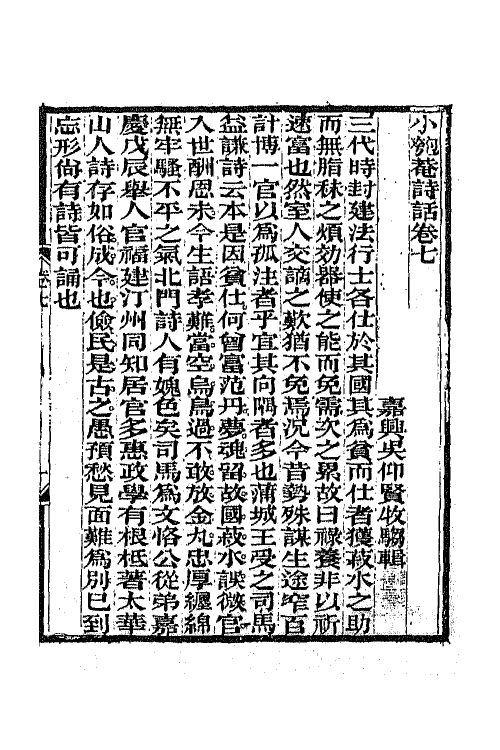 小匏菴詩話卷七
嘉興吳仰賢牧騶輯
三代時封建法行士各仕於其國其爲貧而仕者獲菽水之助
而無脂秣之煩効器使之能而免需次之累故曰祿養非以祈
速富也然至人交謫之歎猶不免焉況今昔勢殊謀生途窄百
計博一官以爲孤注者乎宜其向隅者多也蒲城王受之司馬
益謙詩云本是因貧仕何曾富范丹夢魂留故國菽水誤微官
入世酬恩未今生語孝難當空烏鳥過不敢放金丸忠厚纏綿
無牢騷不平之氣北門詩人有媿色矣司馬爲文恪公從弟嘉
慶戊辰舉人官福建汀州同知居官多惠政學有根柢著太華
山人詩存如俗成今也儉民是古之愚預愁見面難爲別已到
忘形尙有詩皆可誦也
卷七
一